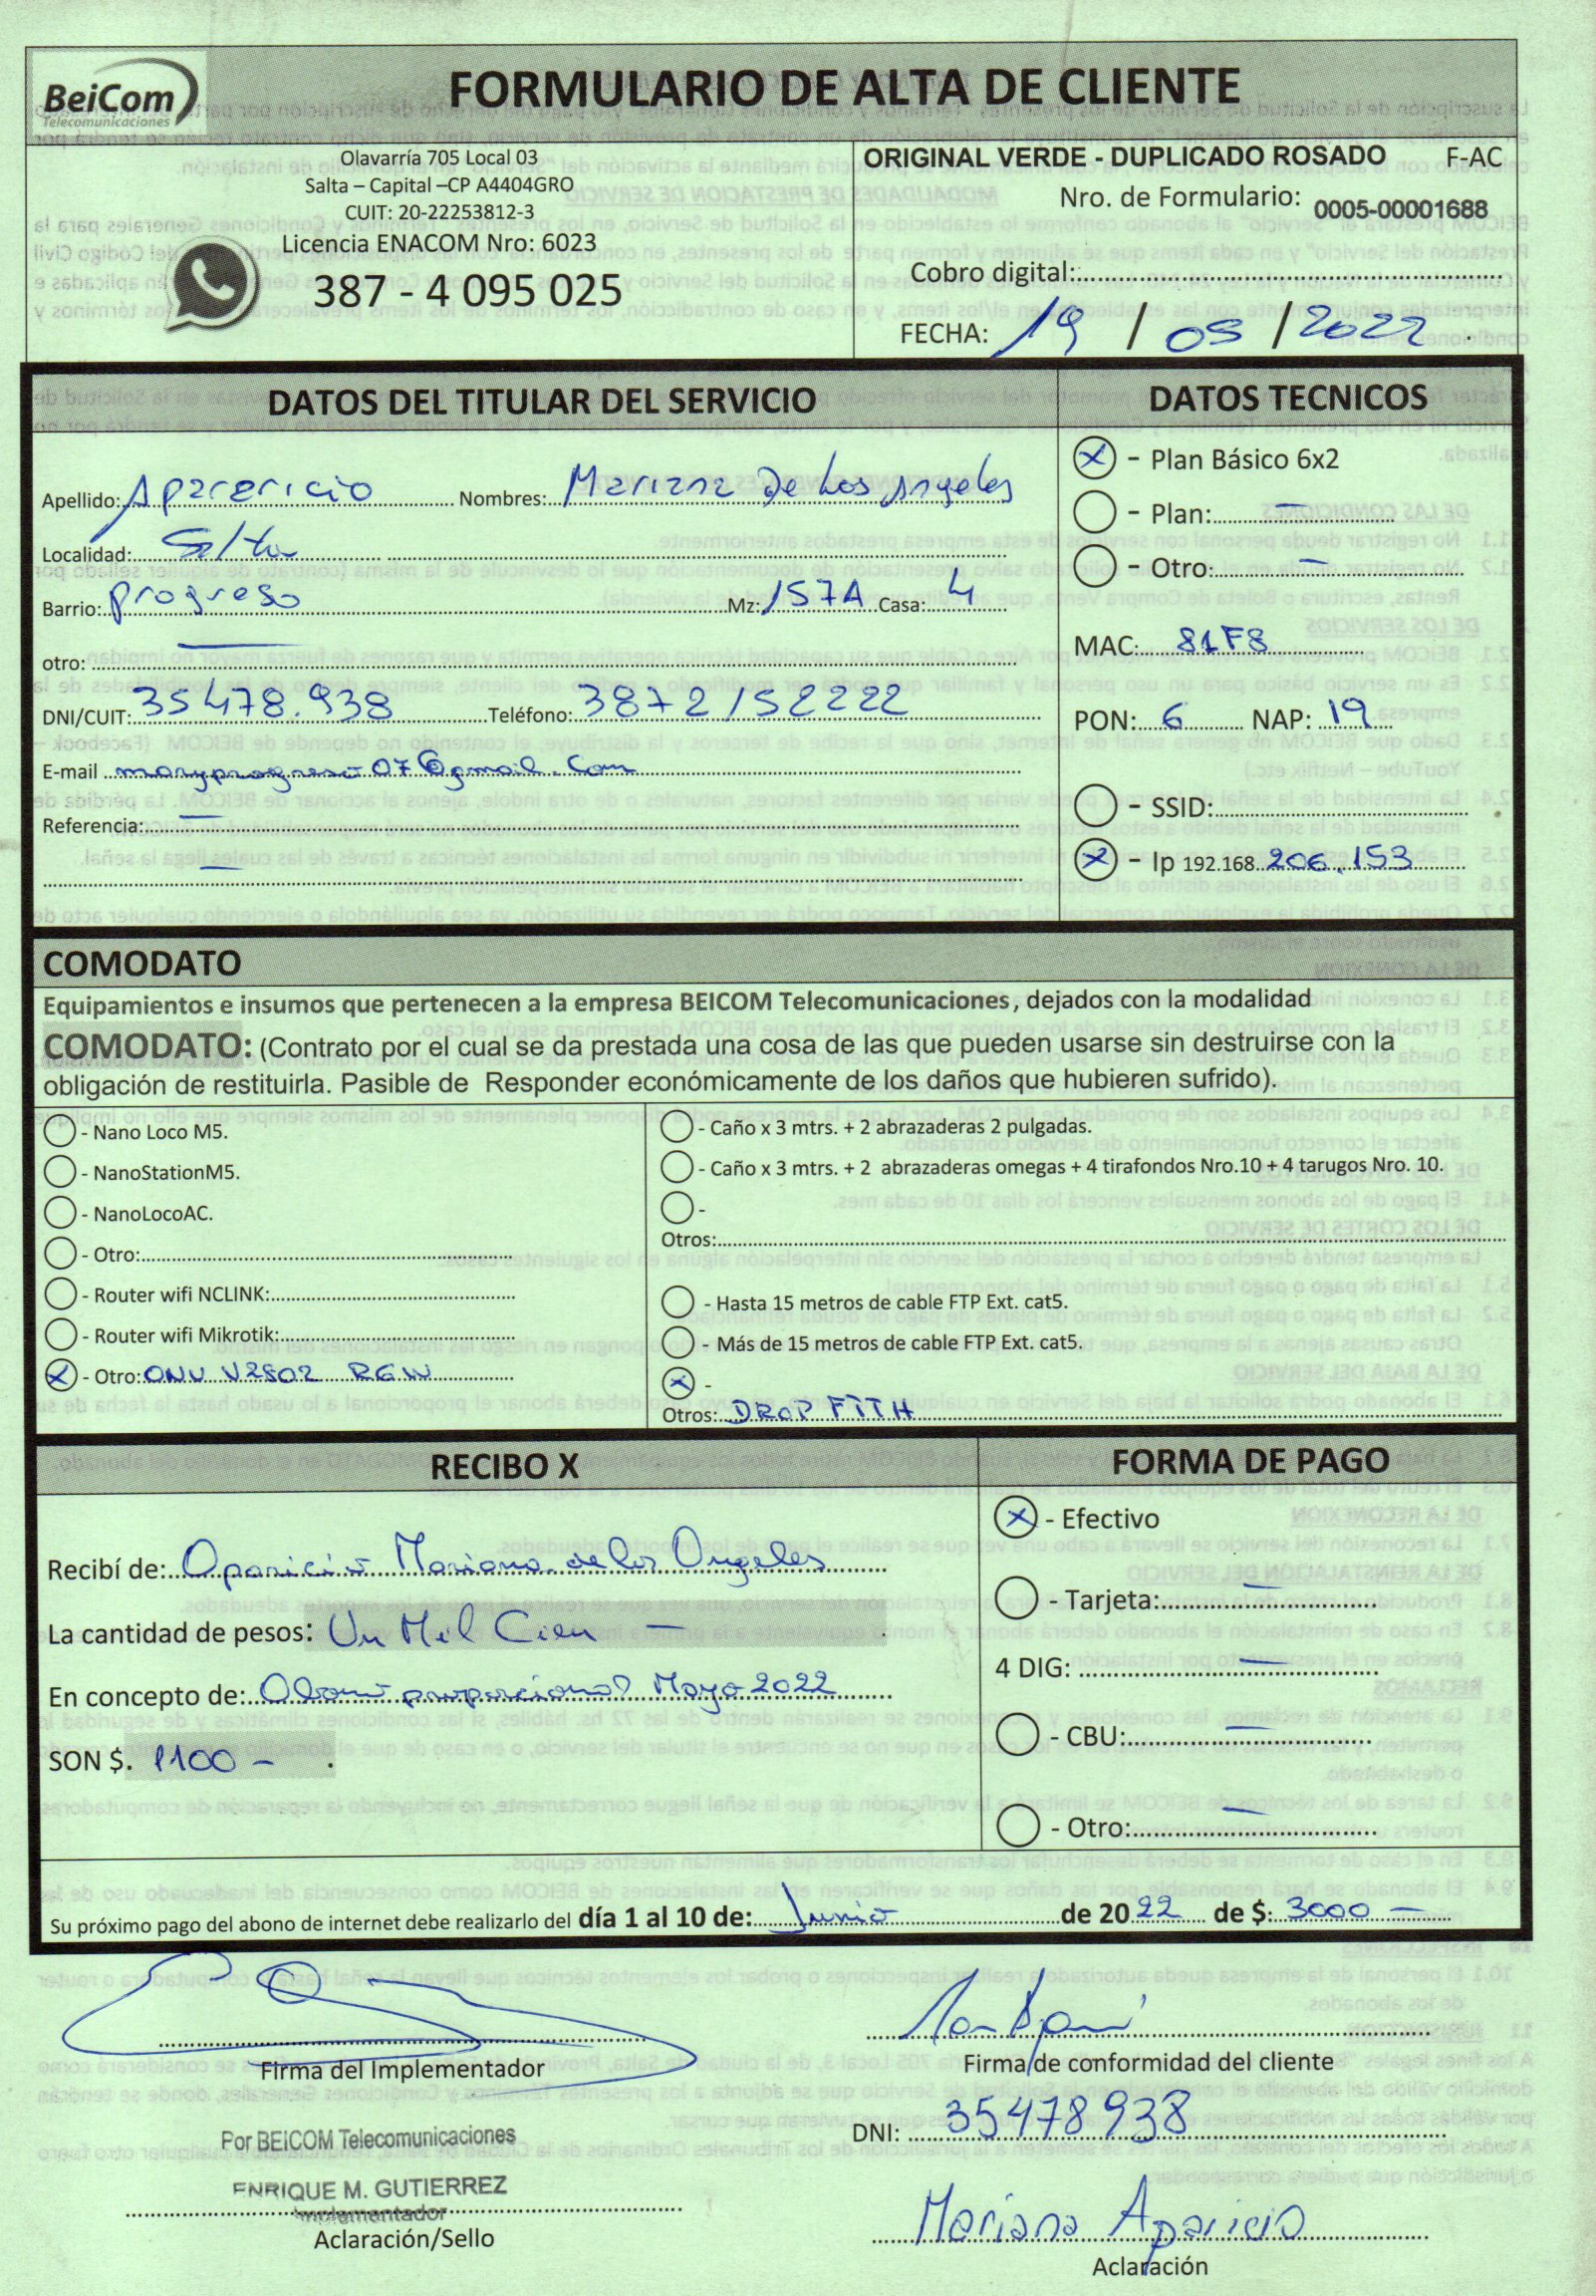 BeiCom
Telecomunicaciones
FORMULARIO DE ALTA DE CLIENTE
Olavarría 705 Local 03
Salta – Capital –CP A4404GRO
CUIT: 20-22253812-3
Licencia ENACOM Nro: 6023
387 - 4 095 025
ORIGINAL VERDE - DUPLICADO ROSADO F-AC
Nro. de Formulario: 0005-00001688
Cobro digital:
FECHA: 19 / 05 / 2022
DATOS DEL TITULAR DEL SERVICIO
Apellido: Apararicio Nombres: Mariana De Los Angeles
Localidad: Salta
Barrio: progreso Mz: 157A Casa: 4
otro: —
DNI/CUIT: 35478.938 Teléfono: 3872152222
E-mail maryprogreso07@gmail.com
Referencia: —
—
DATOS TECNICOS
X - Plan Básico 6x2
- Plan: —
- Otro: —
MAC: 81F8
PON: 6 NAP: 19
- SSID:
X - Ip 192.168. 206.153
COMODATO
Equipamientos e insumos que pertenecen a la empresa BEICOM Telecomunicaciones, dejados con la modalidad
COMODATO: (Contrato por el cual se da prestada una cosa de las que pueden usarse sin destruirse con la
obligación de restituirla. Pasible de Responder económicamente de los daños que hubieren sufrido).
- Nano Loco M5.
- NanoStationM5.
- NanoLocoAC.
- Otro:
- Router wifi NCLINK:
- Router wifi Mikrotik:
X - Otro: ONU V2802 RGW
- Caño x 3 mtrs. + 2 abrazaderas 2 pulgadas.
- Caño x 3 mtrs. + 2 abrazaderas omegas + 4 tirafondos Nro.10 + 4 tarugos Nro. 10.
-
Otros:
- Hasta 15 metros de cable FTP Ext. cat5.
- Más de 15 metros de cable FTP Ext. cat5.
X -
Otros: DROP FTTH
RECIBO X
Recibí de: Aparicio Mariana de los Angeles
La cantidad de pesos: Un Mil Cien —
En concepto de: Abono proporcional Mayo 2022
SON $. 1100 -
FORMA DE PAGO
X - Efectivo
- Tarjeta: —
4 DIG: —
- CBU: —
- Otro: —
Su próximo pago del abono de internet debe realizarlo del día 1 al 10 de: Junio de 2022 de $: 3000 —
Firma del Implementador
Firma de conformidad del cliente
DNI: 35478938
Por BEICOM Telecomunicaciones
ENRIQUE M. GUTIERREZ
Implementador
Aclaración/Sello
Mariana Aparicio
Aclaración